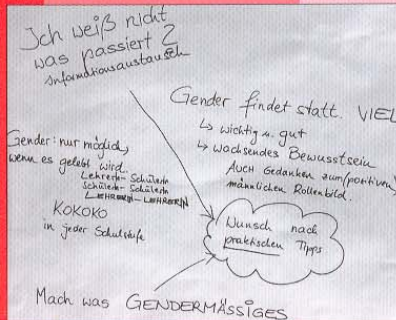 Ich weiß nicht
was passiert ?
Informationsaustausch
Gender findet statt. VIEL
↳ wichtig u. gut
↳ wachsendes Bewusstsein
AUCH Gedanken zum (positiven)
männlichen Rollenbild.
Gender: nur möglich,
wenn es gelebt wird.
LehrerIn - SchülerIn
SchülerIn - SchülerIn
LEHRERIN - LEHRERIN
KOKOKO
in jeder Schulstufe
Wunsch nach
praktischen Tipps
Mach was GENDERMÄSSIGES